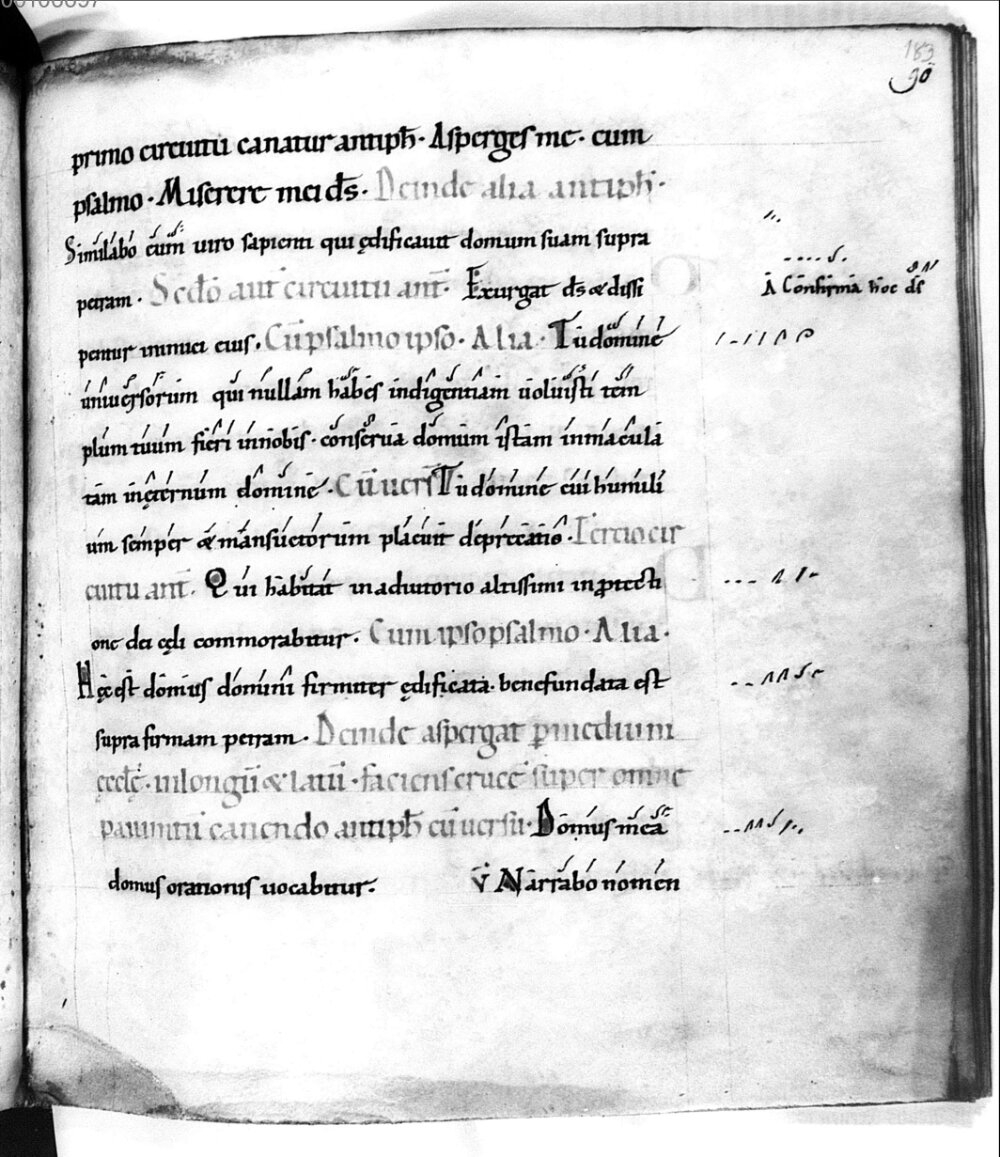 183
90
primo circuitū canatur antiph̄· Asperges me· cum
psalmo· Miserere mei d̄s· Deinde alia antiph̄·
Similabo eum uiro sapienti qui ędificauit domum suam supra
petram· Scd̄o aut̄ circuitu ant̄· Exurgat d̄s & dissi
A Confirma hoc d̄s
pentur inimici eius· Cū psalmo ipso· Alia· Tu domine
uniuersorum qui nullam habes indigentiam uoluisti tem
plum tuum fieri innobis· conserua domum istam inmacula
tam inęternum domine· Cū uerſ Tu domine cui humili
um semper & mansuetorum placuit deprecatio· Tercio cir
cuitu ant̄· Qui habitat in adiutorio altissimi in ꝓtecti
one dei cęli commorabitur· Cum ipso psalmo· Alia·
Hęc est domus domini firmiter ędificata· bene fundata est
supra firmam petram· Deinde aspergat ꝑ medium
ęcclę· in longū & latū· faciens crucē super omne
pauimtū canendo antiph̄ cū uersu· Domus mea
domus orationis uocabitur· v̄ Narrabo nomen